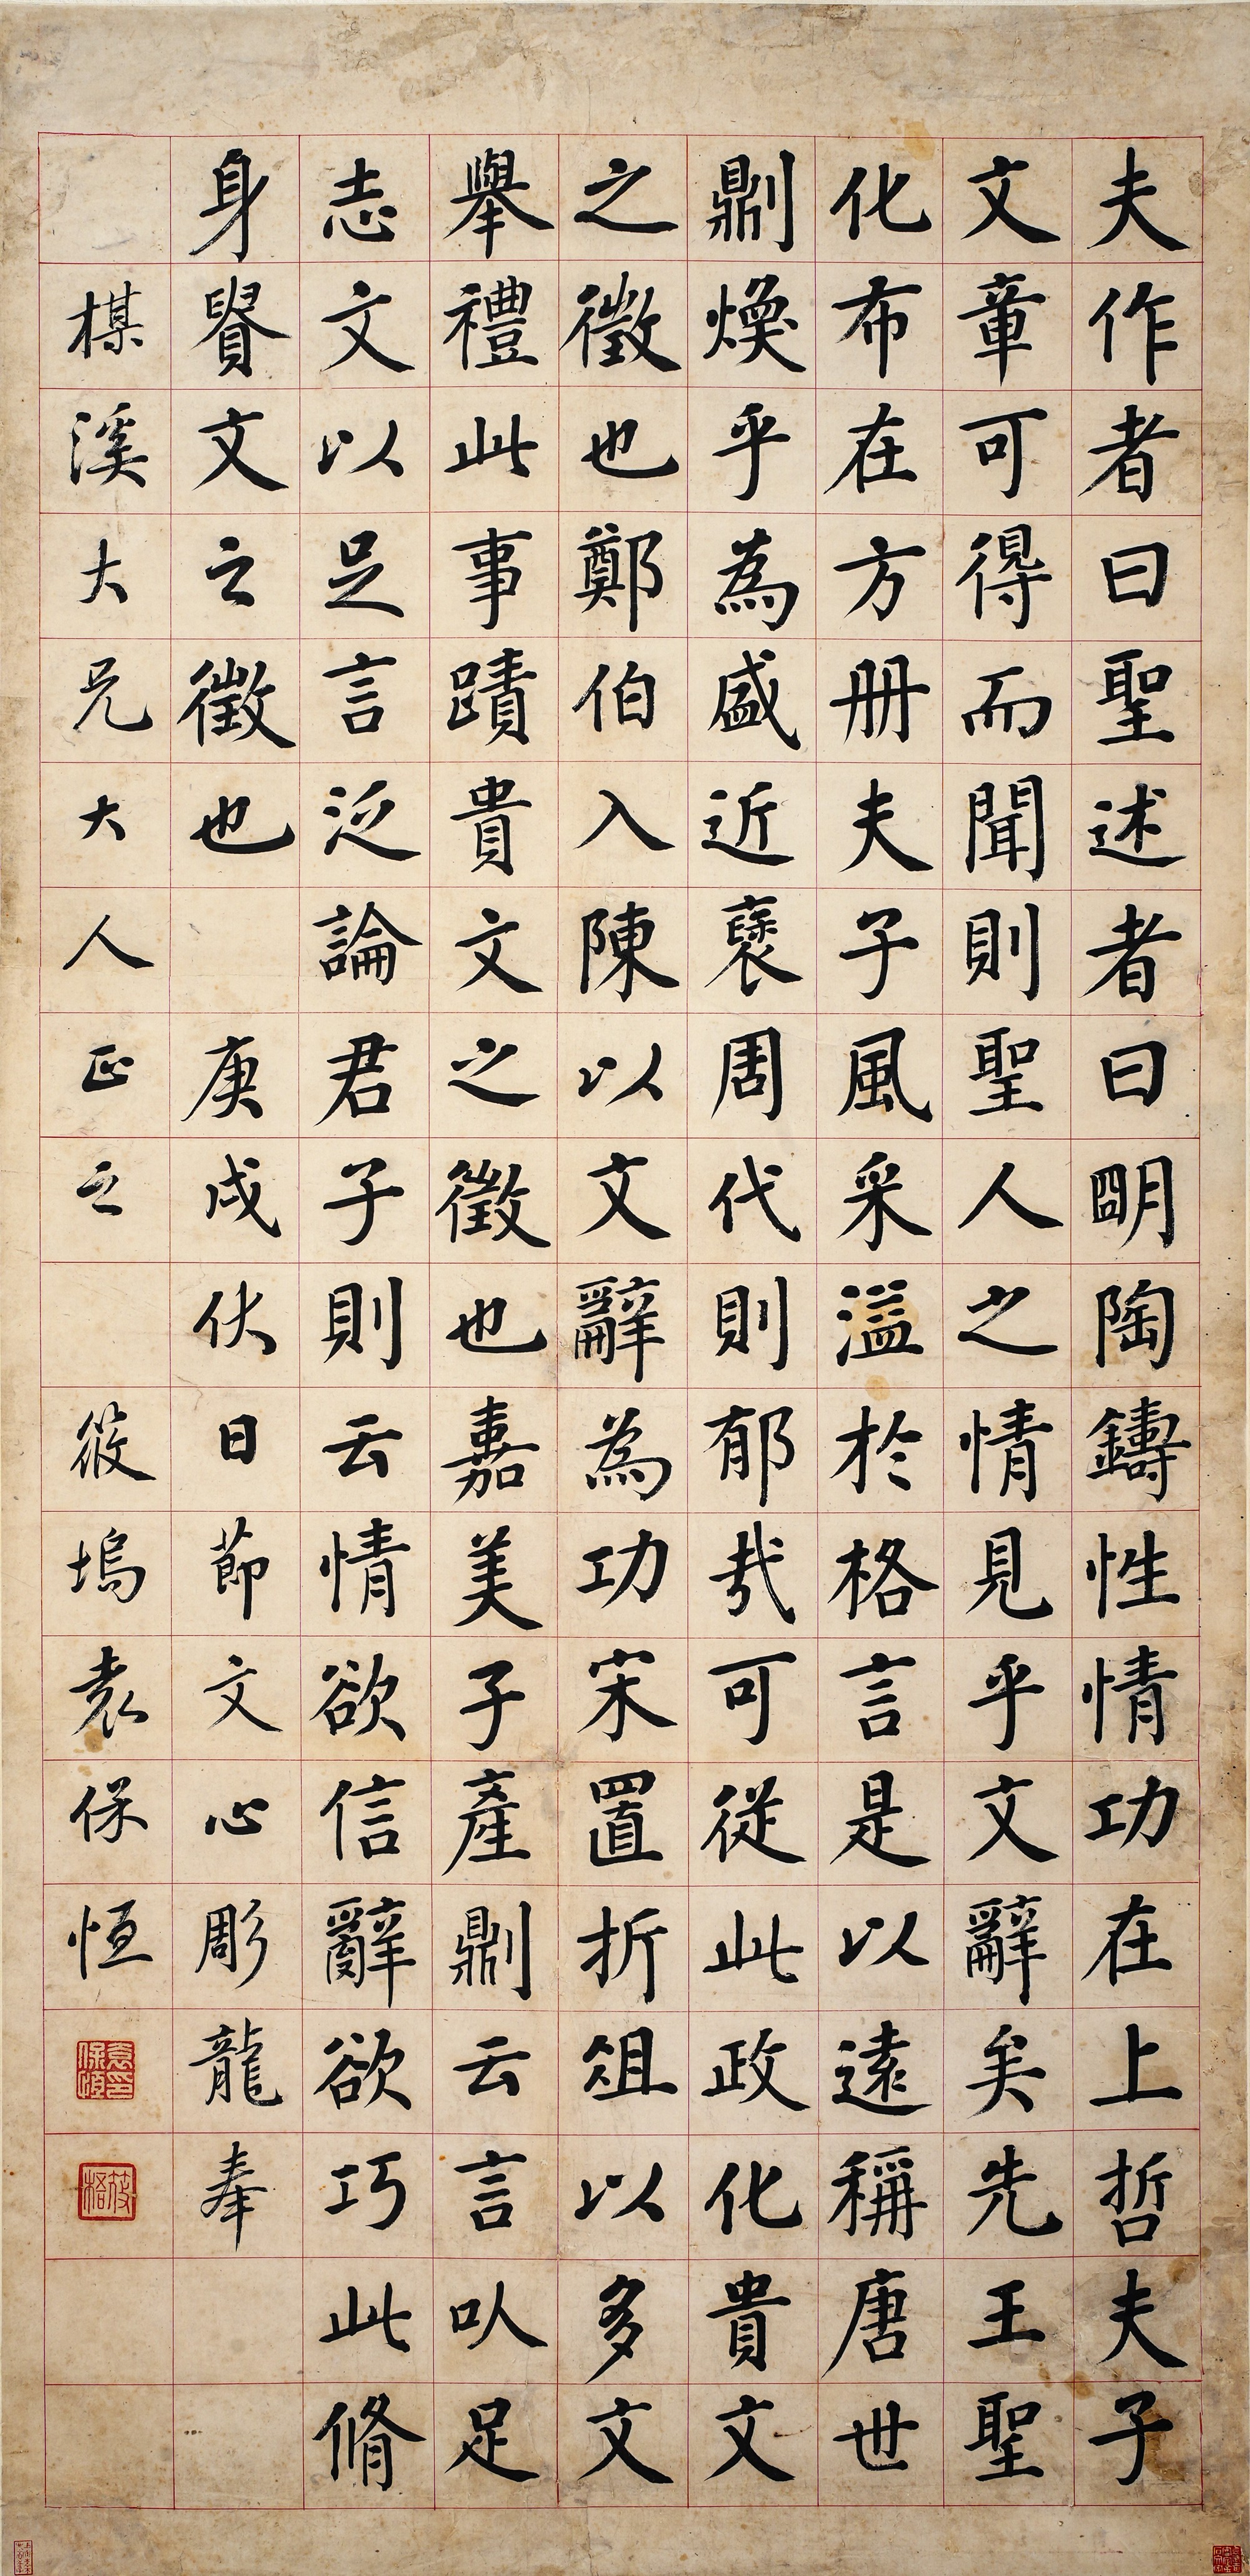 夫作者曰聖述者曰朙陶鑄性情功在上哲夫子
文章可得而聞則聖人之情見乎文辭矣先王聖
化布在方册夫子風采溢於格言是以遠稱唐世
則煥乎為盛近襃周代則郁哉可從此政化貴文
之徵也鄭伯入陳以文辭為功宋置折俎以多文
舉禮此事蹟貴文之徵也嘉美子產則云言以足
志文以足言泛論君子則云情欲信辭欲巧此脩
身貴文之徵也 庚戌伏日節文心彫龍奉
楳溪大兄大人正之 筱塢袁保恒